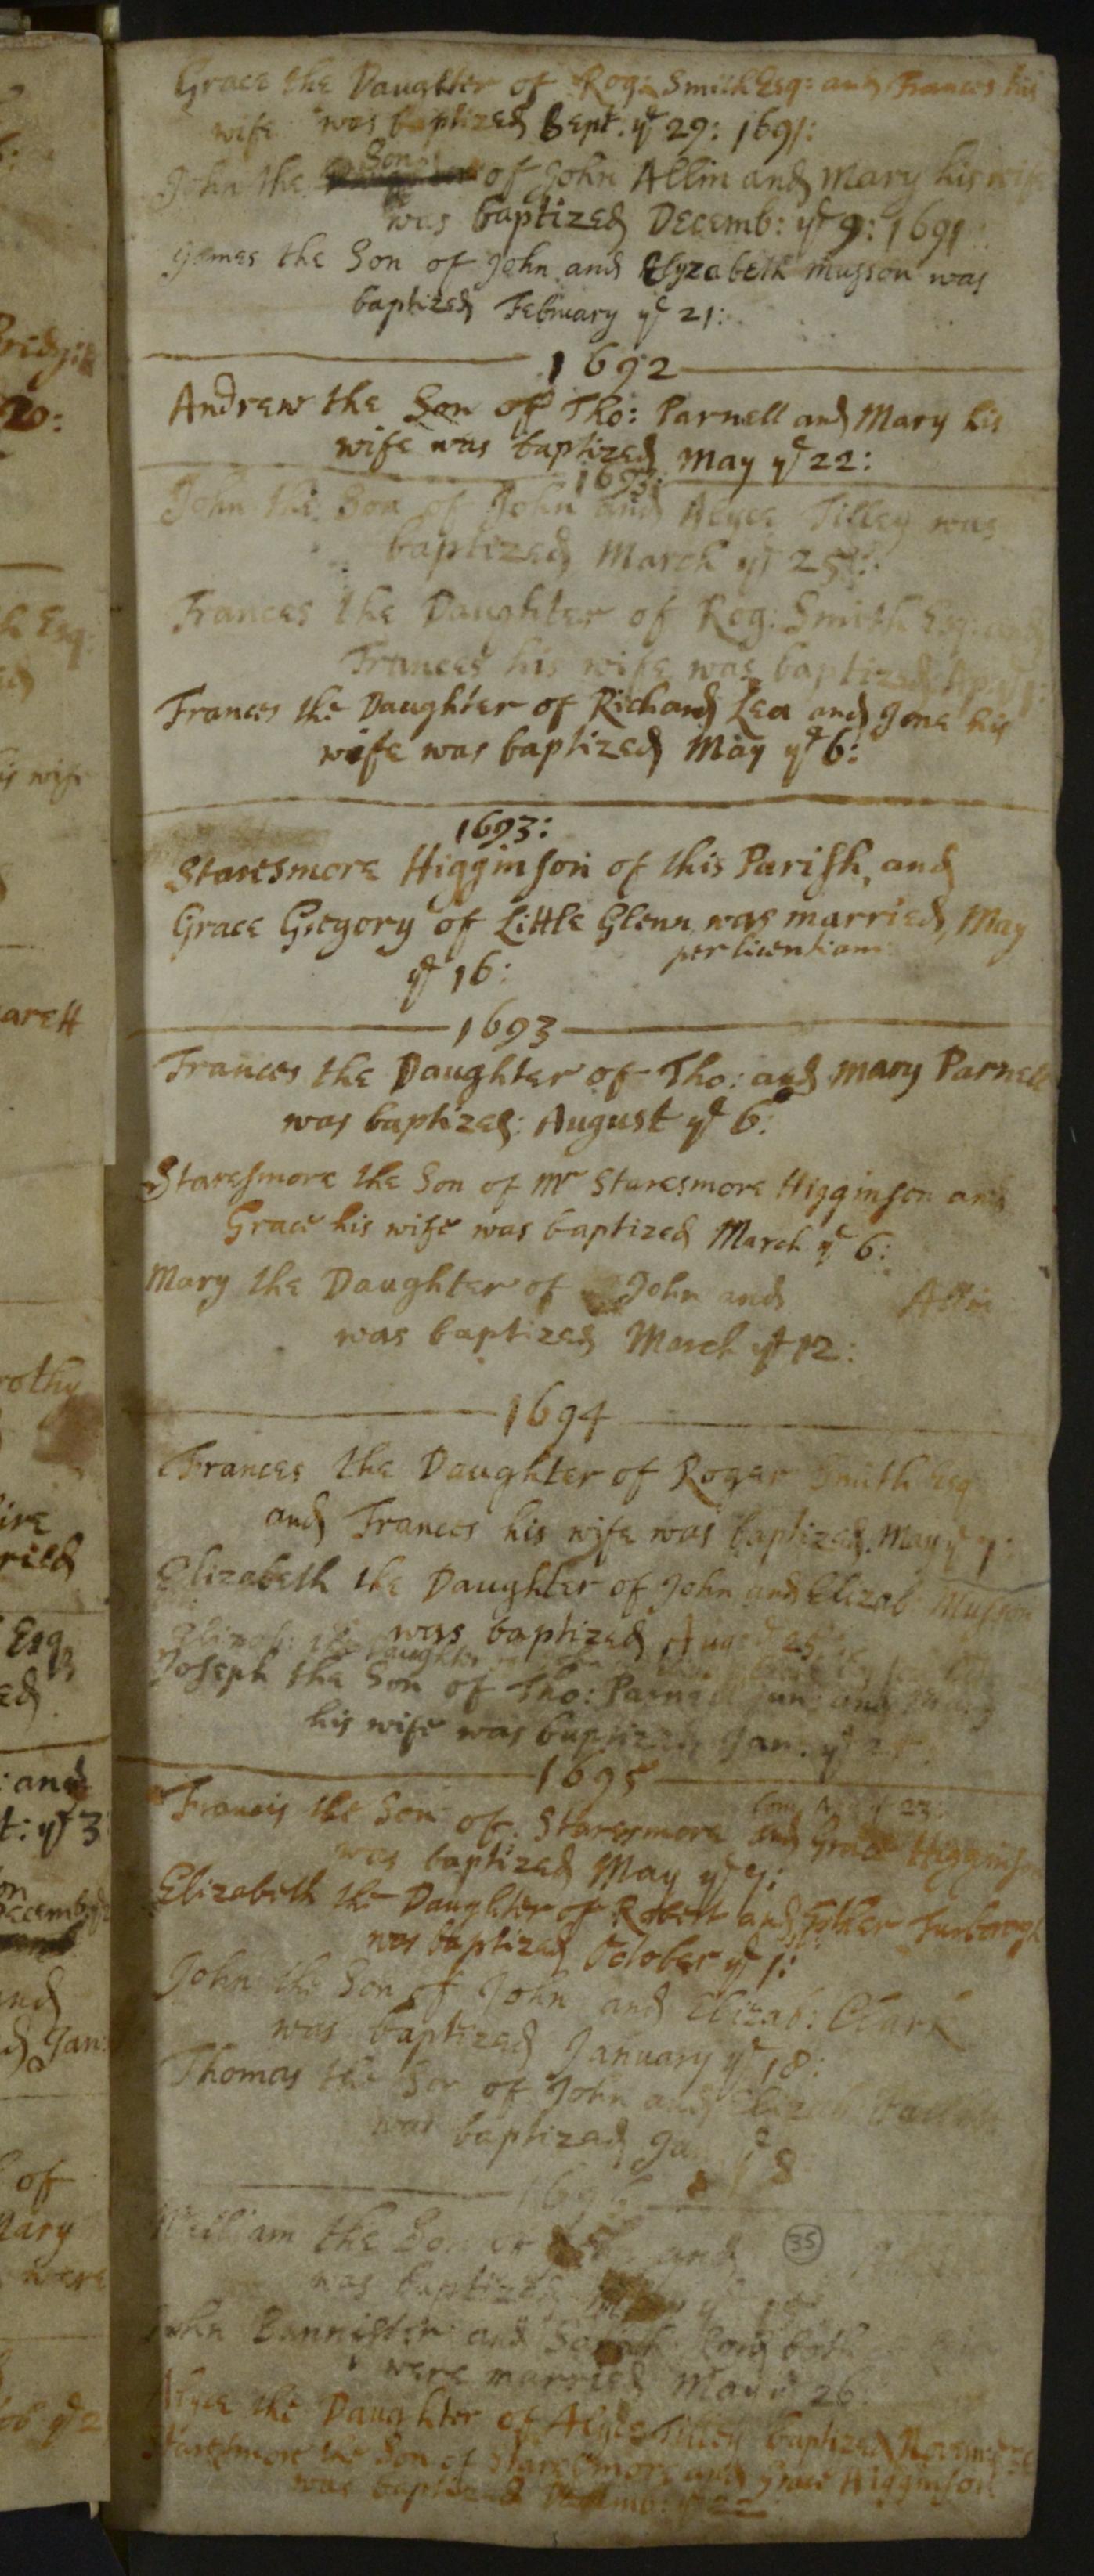 Grace the Daughter of Rog: Smith Esq: and Frances his
wife was baptized Sept: ye 29: 1691:
Son
John the of John Allin and Mary his wife
was baptized Decemb: ye 9: 1691
James the Son of John and Elyzabeth Musson was
baptized February ye 21:
1692
Andrew the Son of Tho: Parnell and Mary his
wife was baptized May ye 22:
1693:
John the Son of John and Alyce Tilley was
baptized March ye 25:
Frances the Daughter of Rog: Smith Esq: and
Frances his wife was baptized
Frances the Daughter of Richard Lea and Jone his
wife was baptized May ye 6:
1693:
Staresmore Higginson of this Parish, and
Grace Gregory of Little Glenn was married, May
per licentiam
ye 16:
1693
Frances the Daughter of Tho: and Mary Parnell
was baptized: August ye 6:
Staresmore the Son of Mr Staresmore Higginson and
Grace his wife was baptized March ye 6:
Mary the Daughter of John and Allin
was baptized March ye 12:
1694
Frances the Daughter of Roger Smith Esq
and Frances his wife was baptized May ye 7:
Elizabeth the Daughter of John and Elizab: Musson
was baptized Aug 25
Daughter
Joseph the Son of Tho: Parnell Jun: and Mary
his wife was baptized Jan: ye
1695
23:
Francis the Son of Staresmore and Grace Higginson
was baptized May ye 7:
Elizabeth the Daughter of Robert and Esther
was baptized October ye 1:
John the Son of John and Elizab: Clark
was baptized January ye 18:
Thomas the Son of John and
was baptized Ja 18
William the Son of and
35
was baptized
John Bannister and Sarah both
were married May ye 26:
Alyce the Daughter of Alyce Tilley baptized Novem:
Staresmore the Son of Staresmore and Grace Higginson
was baptized 22